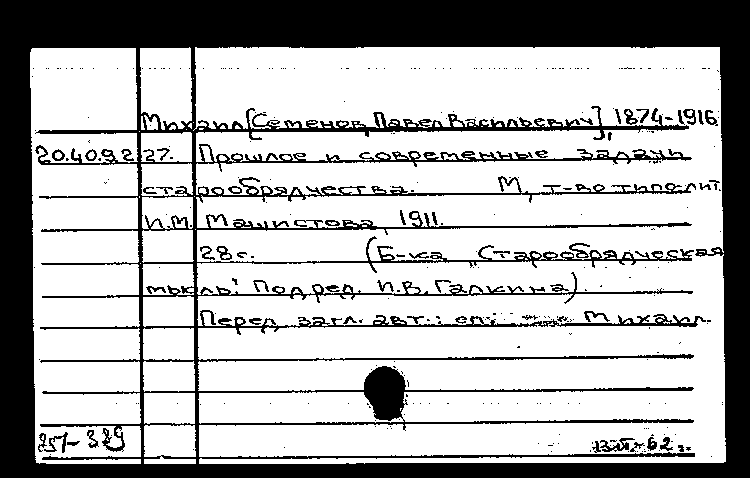 Михаил [Семенов, Павел Васильевич], 1874-1916
20.40.9.2 27. Прошлое и современные задачи
старообрядчества. М., т-во типо-лит.
И.М. Машистова, 1911.
28 с. (Б-ка „Старообрядческая
мысль". Под ред. И.В. Галкина)
Перед загл. авт.: еп. Михаил.
351-339
62 г.